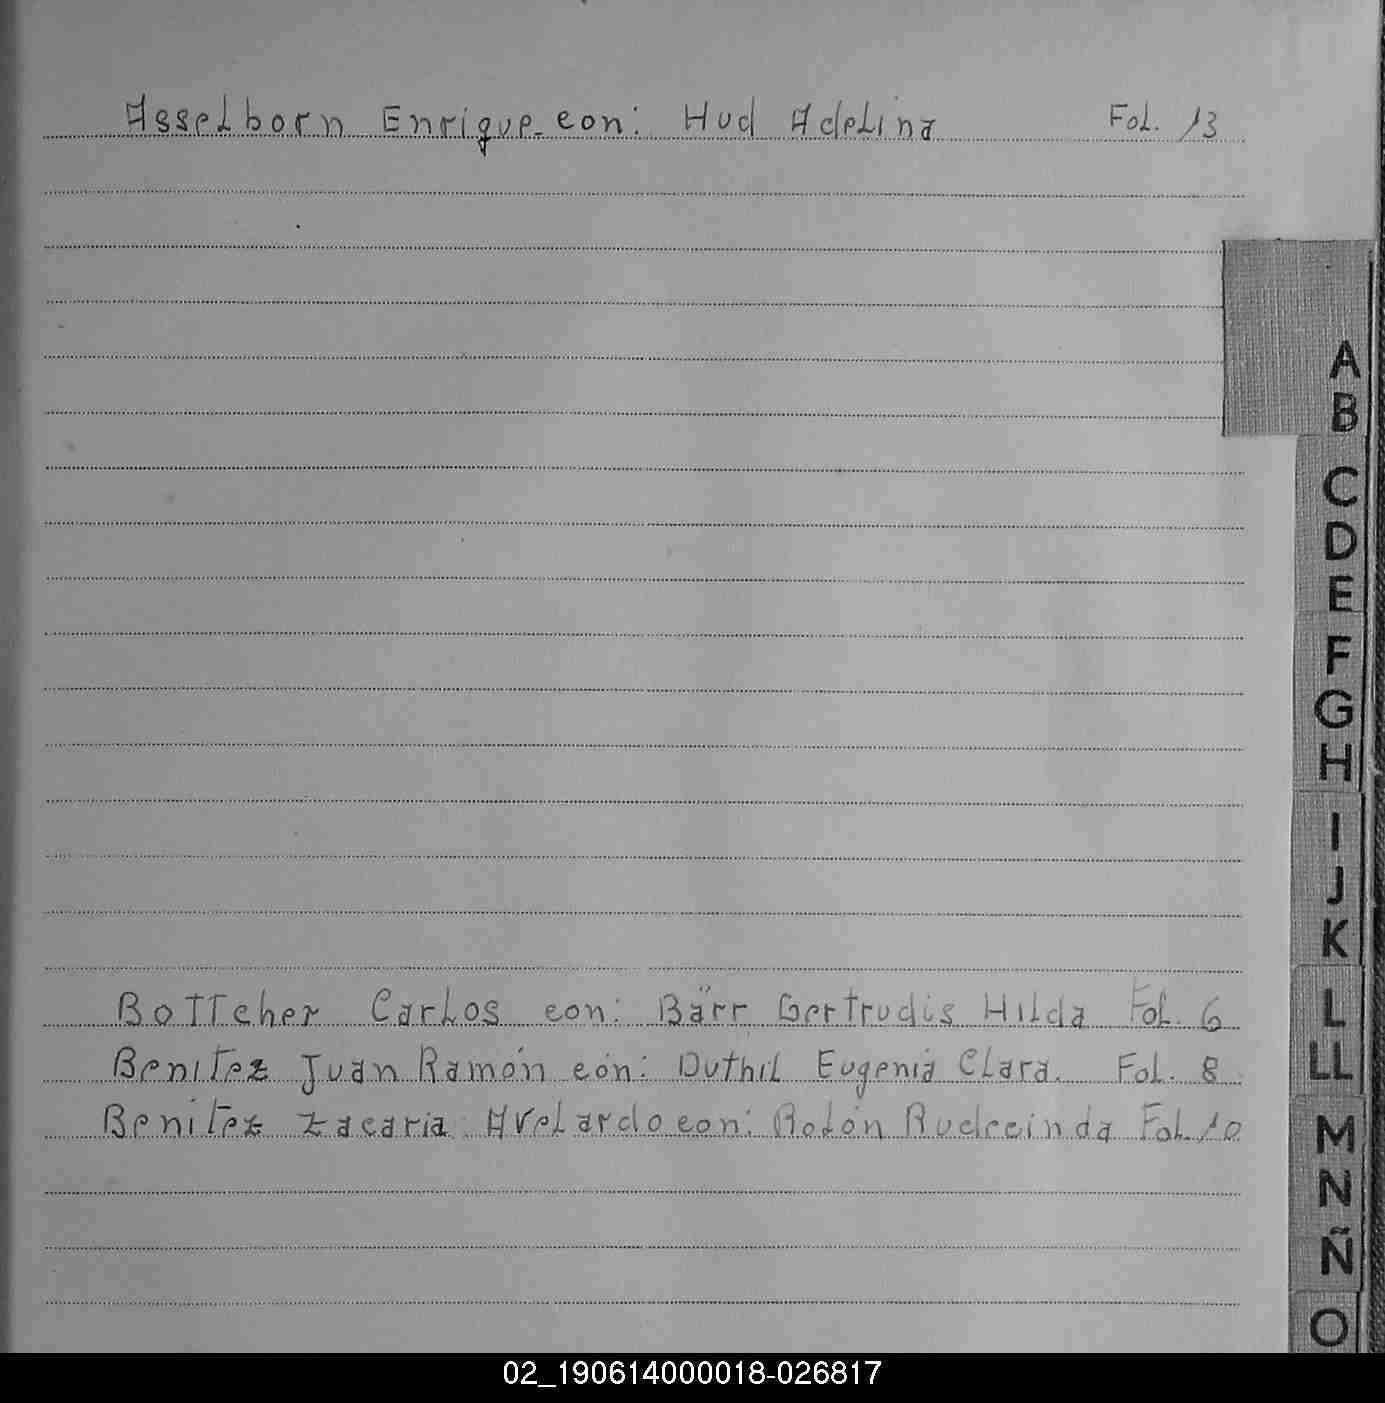 Asselborn Enrique con: Hud Adelina Fol. 13
A
B
C
D
E
F
G
H
I
J
K
Bottcher Carlos con: Bärr Gertrudis Hilda Fol. 6
L
Benitez Juan Ramón con: Duthil Eugenia Clara. Fol. 8
LL
Benitez Zacaria Avelardo con: Rolón Rudecinda Fol. 10
M
N
Ñ
O
02_190614000018-026817